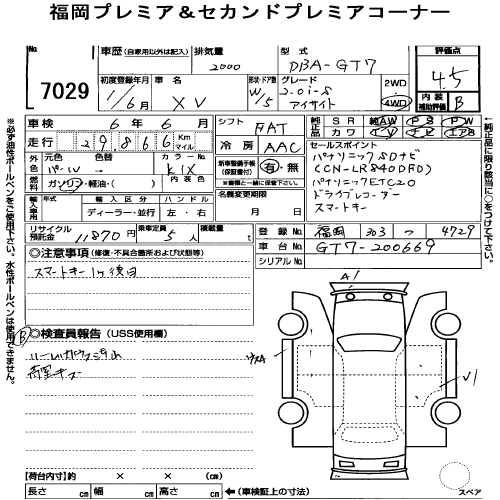 福岡プレミア＆セカンドプレミアコーナー
No 7029
車歴 (自家用以外は記入)
排気量 2000
型式 DBA-GT7
評価点 4.5
初度登録年月 11/6月
車名 XV
形状・ドア数 W/5
グレード 2.0i-S アイサイト
2WD
4WD
内装補助評価 B
車検 6年6月
走行 29,866 Km マイル
シフト FAT
冷房 AAC
純正品 SR 純AW PS PW
カワ TV ナビ エアB
外色 元色 パール 色替 カラーNo. K1X
燃料 ガソリン・軽油・( ) 内装色
新車整備手帳(保証書付) 有・無
※車と一緒に保管下さい
セールスポイント
パナソニックSDナビ
(CN-LR840DFD)
パナソニックETC2.0
ドライブレコーダー
スマートキー
輸入車用 年式 ディーラー・並行 ハンドル 左・右
名義変更期限 月 日
リサイクル預託金 11870円
乗車定員 5人
積載量 t
登録No. 福岡 303 つ 4729
車台No. GT7-200669
シリアルNo.
◎注意事項 (修復・不具合箇所および状態等)
スマートキー1ヶ後日
A1
B
◎検査員報告 (USS使用欄)
荷室キズ
V1
【荷台内寸】 × × (cm)
長さ cm 幅 cm 高さ cm ←(車検証上の寸法)
スペア
※必ず油性ボールペンをご使用下さい。水性ボールペンは使用できません。